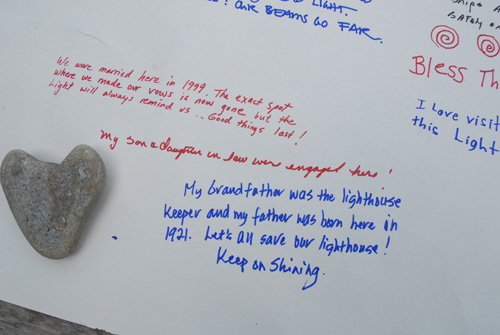 LIGHT.
! OUR BEAMS GO FAR.
We were married here in 1999. The exact spot
where we made our vows is now gone but the
Light will always remind us... Good things last!
My son & daughter in law were engaged here!
My Grandfather was the lighthouse
Keeper and my father was born here in
1921. Let's all save our lighthouse!
Keep on Shining.
Ships
Safely
Bless Th
I Love visit
this Light